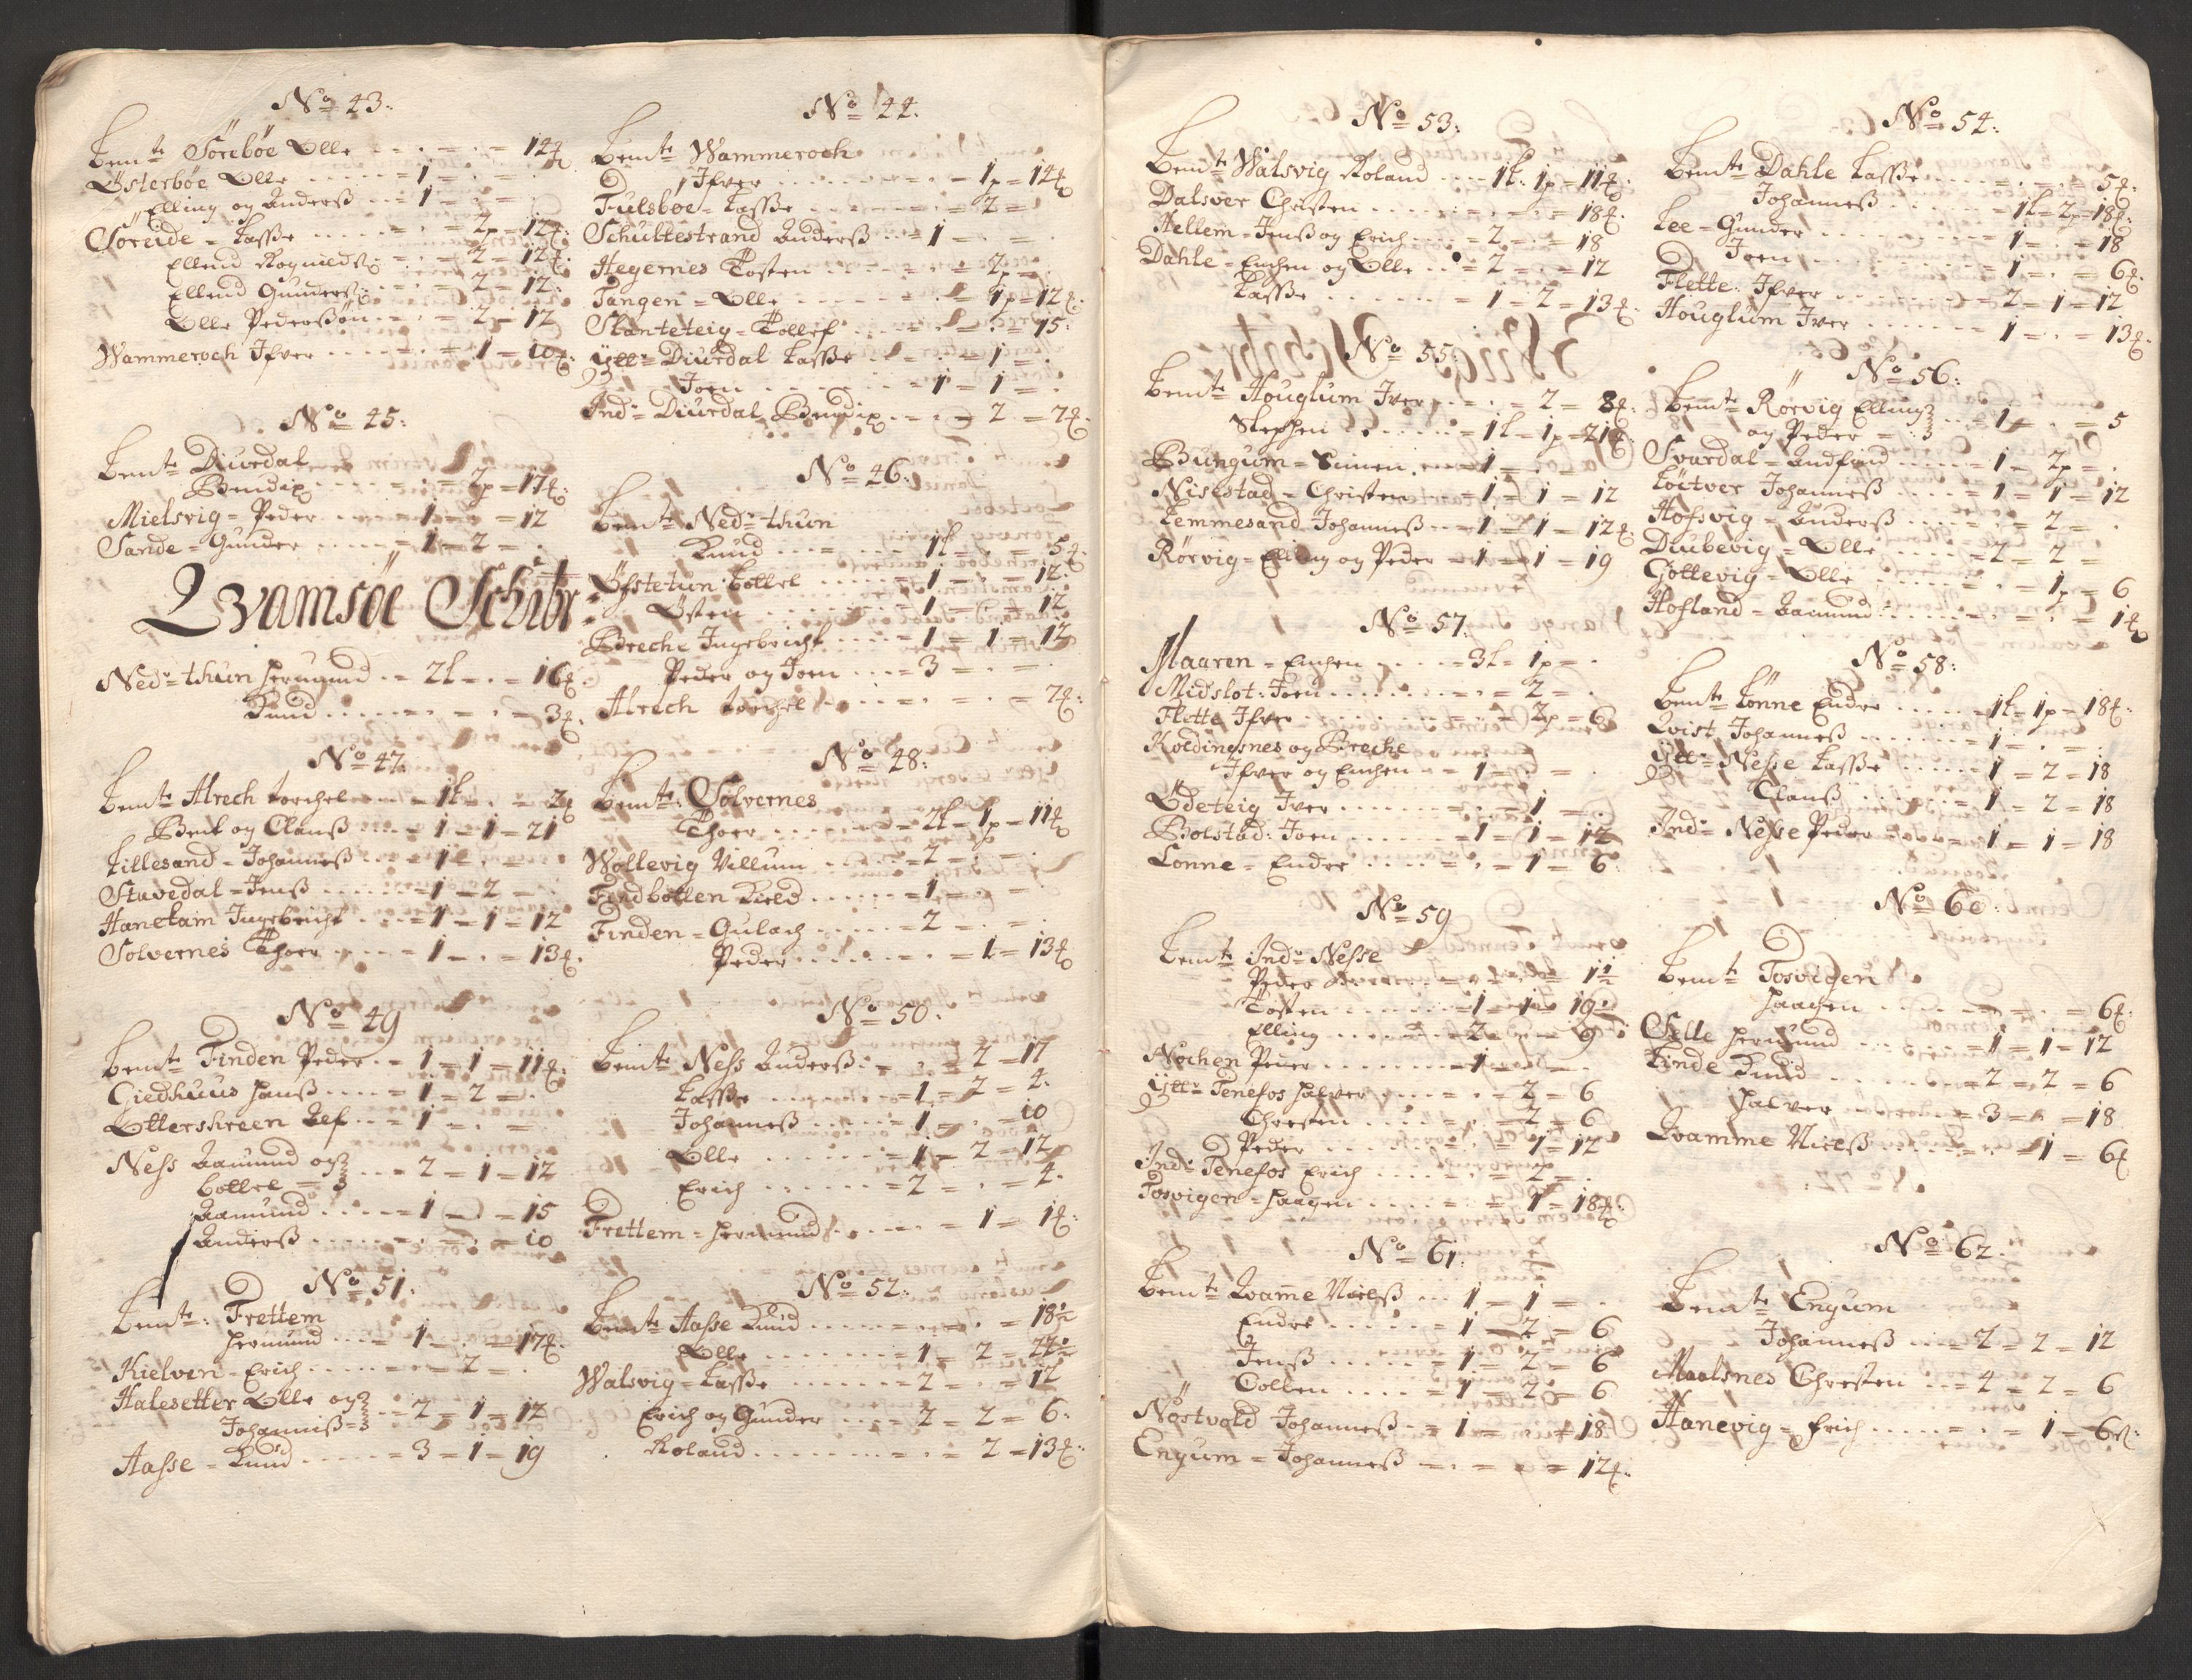 No 43:
bemte Söreböe Olle - - - - - 12
Østerböe Olle - - - - 1 - -
Elling og Anderß - - 1 - -
Söreide - Laße - - - 2p - 12
Ellend Rognelds: - - 2 - 12
Ellend Gunders: - - 2 - 12
Olle Pederßön - - 2 - 12
Wammeroch Ifver - - - 1 - 10
No 45:
bemte Diurdal
Bendix - - - - 2p - 17
Mielsvig - Peder - - 1 - - 12
Sande - Gunder - - 1 - 2 -
Qvamsöe Schibr:
Nedr thun hermund - 2l - - 16
Knud - - - - - 3
No 47:
bemte Alrech torchel - - 1l - - 2
Bent og Clauß - - 1 - 1 - 21
Lillesand - Johanneß - - 1 - -
Stavedal - Jenß - - - 1 - 2 -
Hanekam Ingebricht - - 1 - 1 - 12
Solvernes Thoer - - - 1 - - 13
No 49
bemte Finden Peder - 1 - 1 - 11
Giedhuus hanß - - - 1 - 2 -
Ottershreen Lef - - 1 - -
Ness Aamund og
bottel - - - 2 - 1 - 12
Aamund - - - - 1 - - 15
Anderß - - - - - - 10
No 51:
bemte: Frettem
hermund - - - 1 - - 17
Kielven - Erich - - - - 2 -
Halesetter Olle og
Johanniß - - - 2 - 1 - 12
Aasse - Knud - - - 3 - 1 - 19
No 44:
bemte Wammeroch
Ifver - - - - - 1p - 12
Fulsböe - Laße - - - - 2 -
Schultestrand Anderß - - 1 - -
Hegernes Tosten - - - - 2p -
Tangen - Olle - - - - 1p - 12
Slanteteig - Tollef - - - - 15
Ytr Diurdal Laße - - - - 1 -
Joen - - - - 1 - 1 -
Indr Diurdal Bendix - - - 2 - 7
No 46:
bemte Nedr thun
Knud - - - - 1l - - 5
Øfstetun bottel - - - 1 - - 12
Østen - - - - 1 - - 12
Breche Ingebricht - - - 1 - 1 - 12
Peder og Joen - - 3 - -
Alrech torchel - - - - - 7
No 48:
bemte: Solvernes
Thoer - - - - 2l - 1p - 11
Wollevig Villum - - - 2 - -
Findbotten Kield - - - 1 - -
Finden - Gulach - - - 2 - -
Peder - - - - - 1 - 13
No 50:
bemte Ness Anderß - - - 2 - 17
Laße - - - - 1 - 2 - 4
Johanneß - - - 1 - - 10
Olle - - - - 1 - 2 - 12
Erich - - - - 2 - - 4
Frettem - hermund - - - - 1 - 1
No 52:
bemte Aasse Knud - - - - - 18½
Olle - - - - 1 - 2 - 22½
Walsvig - Laße - - - 2 - - 12
Erich og Gunder - - - 2 - 2 - 6
Roland - - - - - 2 - 13
No 53:
bemte Walsvig Roland - - 1l: 1p - 11
Dalsver Christen - - - - - 18
Hellem - Jenß og Erich - - 2 - - 18
Dahle - Enchen og Olle - - 2 - - 12
Laße - - - - 1 - 2 - 13
No 55:
bemte Houglum Iver - - - 2 - 8
Stephen - - - 1l - 1p - 21
Bungum - Simen - - 1 - -
Nisestad - Christen - - 1 - 1 - 12
Lemmesand Johanneß - - 1 - 1 - 12
Rörvig - Elling og Peder - 1 - 1 - 19
No 57:
Maaren - Enchen - - - 3l - 1p -
Midslot: Joen - - - - - 2 -
Flette Ifver - - - - - 2p - 6
Koldingsnes og Breche
Ifver og Enchen - - 1 - -
Ödeteig Iver - - - - - 1 -
Bolstad: Joen - - - - 1 - 1 - 12
Lonne - Endre - - - - - 1 - 6
No 59
bemte Indr Nesse
Peder - - - - - - 1½
Tosten - - - 1 - 1 - 19
Elling - - - - 2 - - 9
Nochen Peder - - - - 1 - -
Ytr Tenefos halver - - - - 2 - 6
Christen - - - - 2 - 6
Peder - - - - 1 - 12
Indr Tenefos Erich - - - - 2 -
Tosvigen - haagen - - - - 1 - 18
No 61:
bemte Qvame Nielß - - 1 - 1 -
Endre - - - - 1 - 2 - 6
Jenß - - - - 1 - 2 - 6
Collen - - - - 1 - 2 - 6
Nöstvold Johanneß - - 1 - - 18
Engum - Johanneß - - - - 12
No 54:
bemte Dahle Laße - - - - - 5
Johanneß - - - 1l - 2p - 18
Lee - Gunder - - - - 1 - - 18
Joen - - - - - 1 - - 6
Flette: Ifver - - - - 2 - 1 - 12
Houglum Iver - - - - 1 - - 13
No 56:
bemte Rörvig Elling
og Peder - - - 1 - - 5
Svardal - Andfind - - - 1 - 2p -
Löitver Johanneß - - - 1 - 1 - 12
Hofsvig - Anderß - - - - 2 -
Diubevig - Olle - - - 2 - 2 -
Gottevig - Olle - - - - 1p - 6
Hofland - Aamund - - - - - 1
No 58:
bemte Lönne Endre - - - 1l - 1p - 18
Qvist Johanneß - - - - 1 - -
Ytr Nesse Laße - - - 1 - 2 - 18
Clauß - - - - 1 - 2 - 18
Indr Nesse Peder - - - 1 - 1 - 18
No 60:
bemte Tosvigen
haagen - - - - - - 6
Celle hermund - - - - 1 - 1 - 12
Linde Knud - - - - 2 - 2 - 6
halver - - - - 3 - - 18
Qvamme Nielß - - - - 1 - 6
No 62.
bemte Engum
Johanneß - - - 2 - 2 - 12
Maalsnes Christen - - 4 - 2 - 6
Hanevig - Erich - - - - - 1 - 6